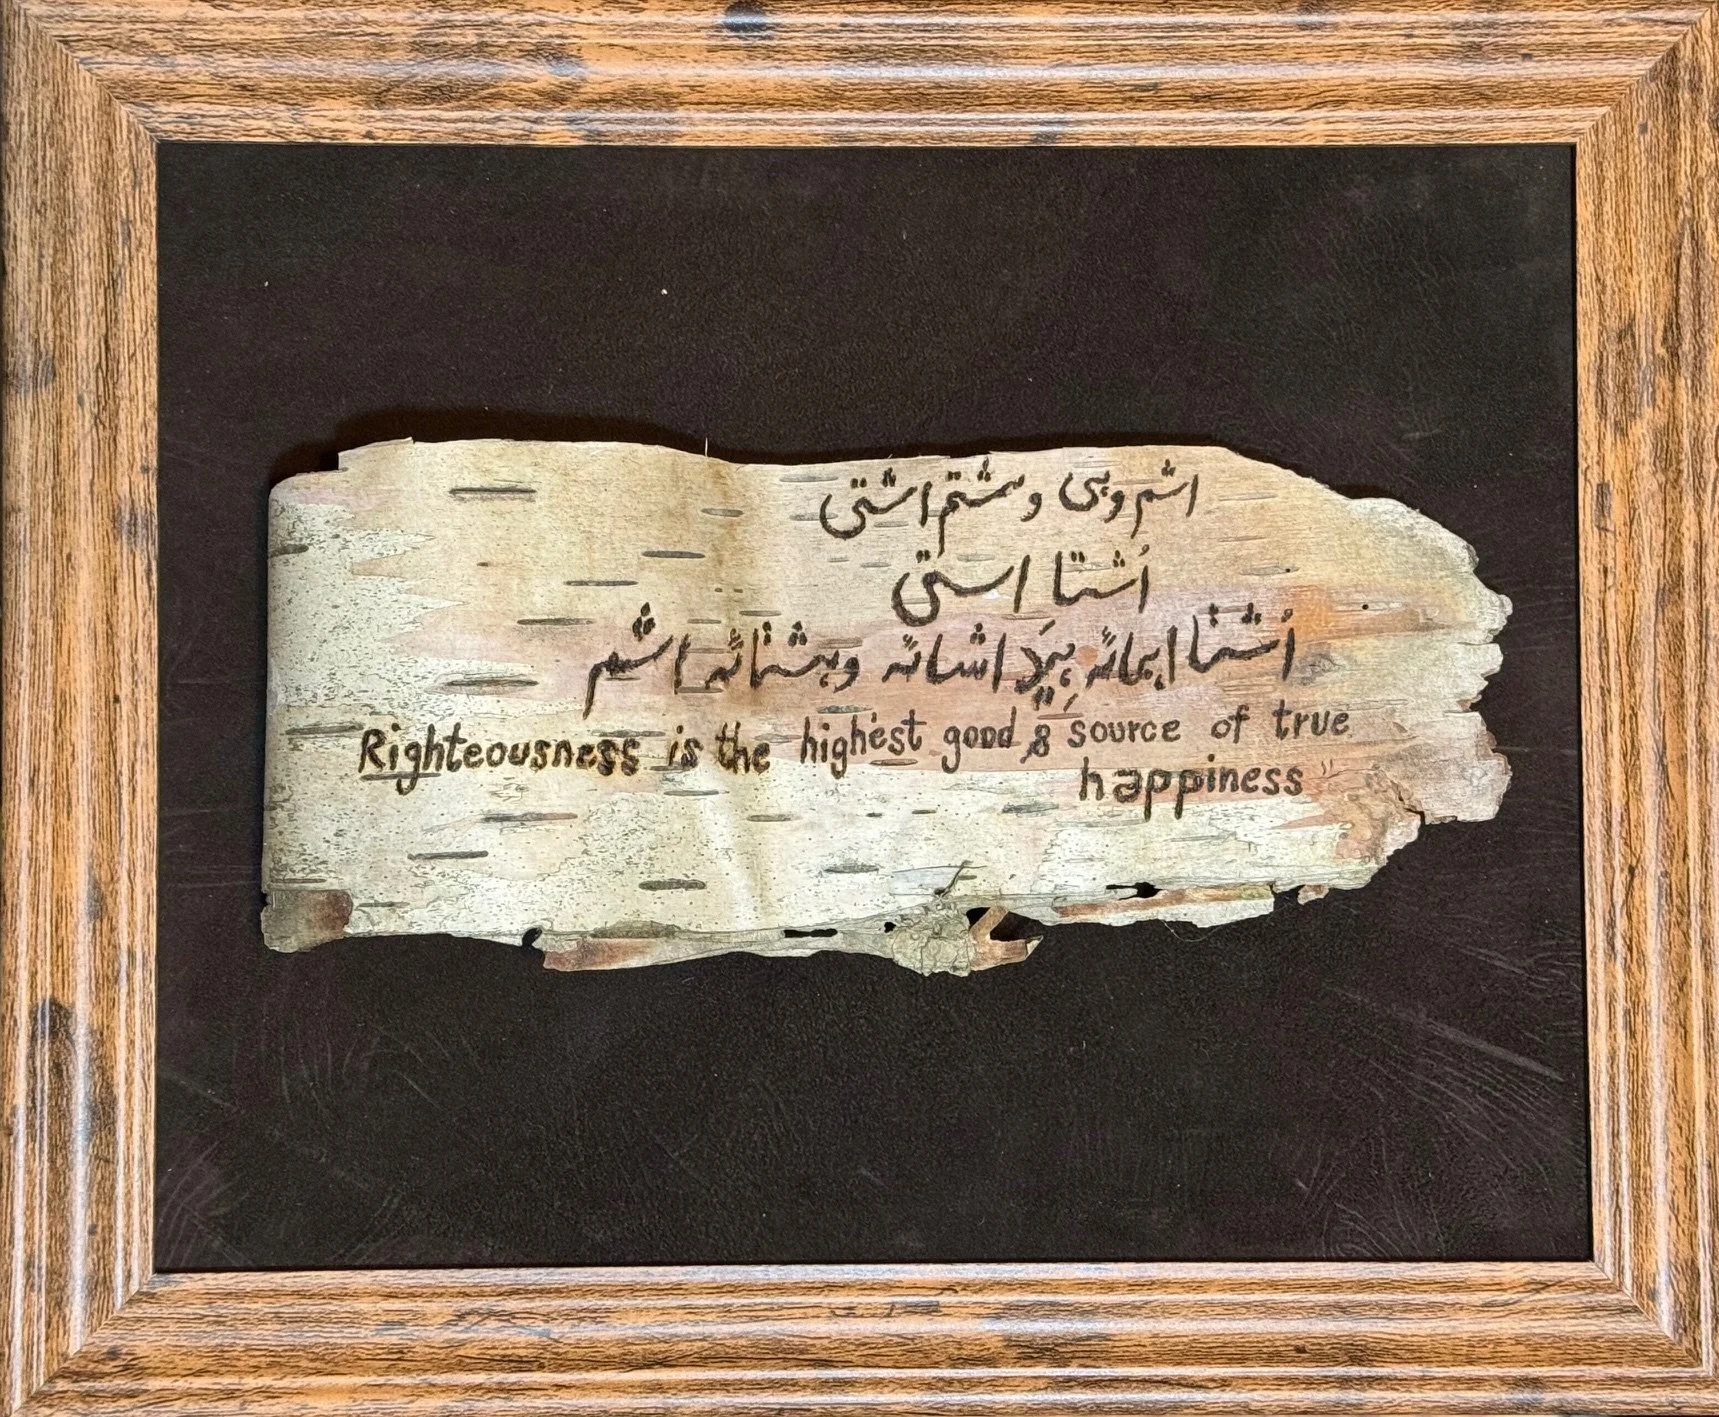 اشم وهی وهشتم استی
اُشتا استی
اُشتا اهمائه هیَد اشائه وهشتائه اشم
Righteousness is the highest good & source of true
happiness"